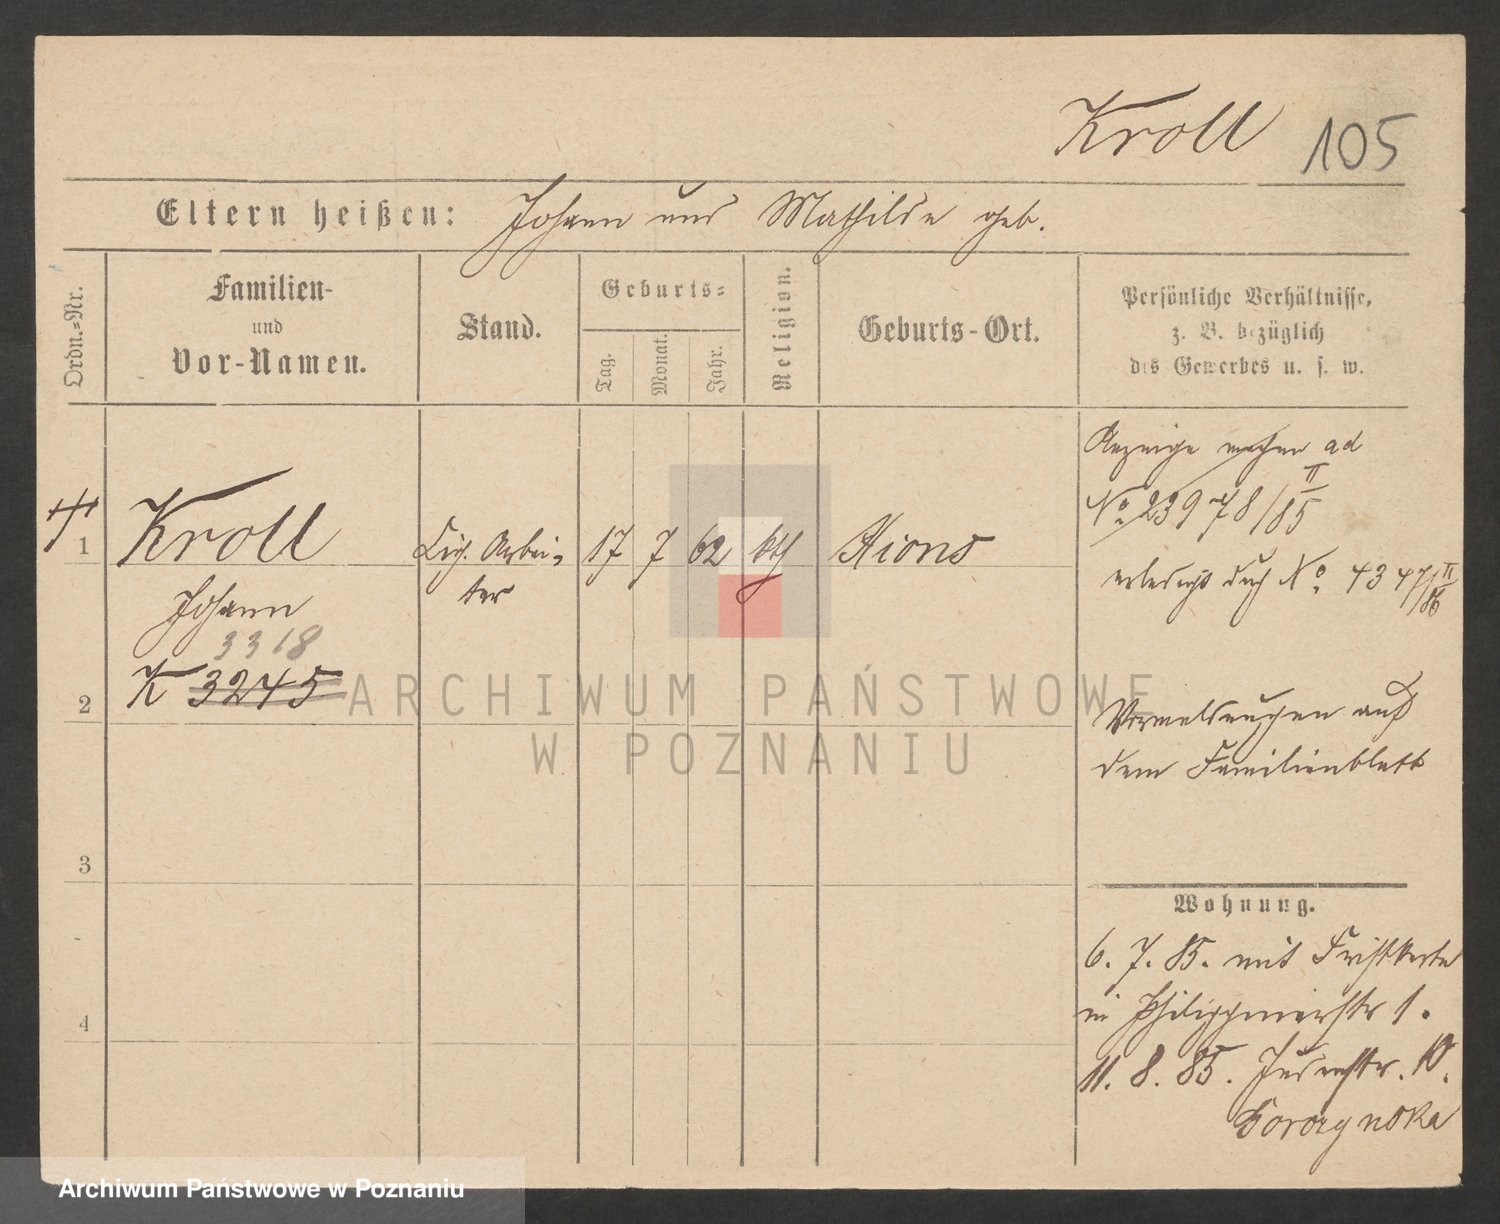 Kroll 105
Eltern heißen: Johann und Mathilde geb.
Ordn.=Nr.
Familien-
und
Vor-Namen.
Stand.
Geburts=
Tag.
Monat.
Jahr.
Religion.
Geburts-Ort.
Persönliche Verhältnisse,
z. B. bezüglich
des Gewerbes u. s. w.
1
Kroll
Johann
3318
K 3245
Cig. Arbei-
ter
17 7 62 kth
Xions
Anzeige machen ad
No. 23978/II 85
erledigt durch No. 4347/II 86
2
Vermeldungen auf
dem Familienblatt
3
4
Wohnung.
6. 7. 85. mit
in Philippinerstr 1.
11. 8. 85. Judenstr. 10.
ARCHIWUM PAŃSTWOWE
W POZNANIU
Archiwum Państwowe w Poznaniu